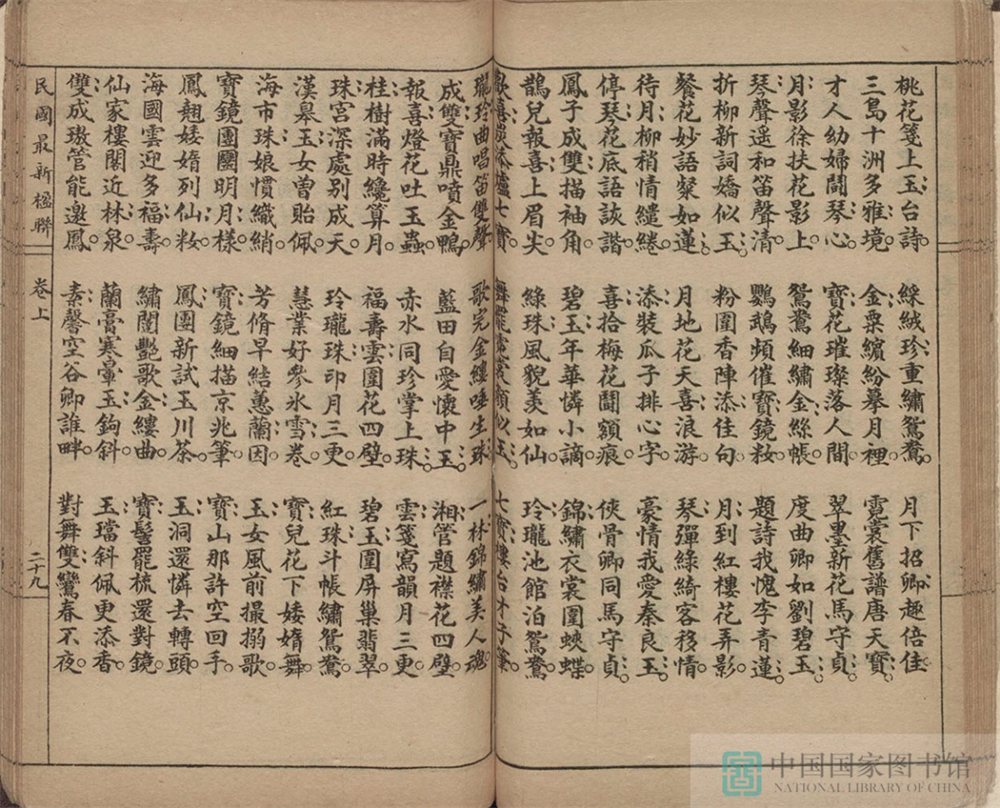 桃花箋上玉台詩
三島十洲多雅境
才人幼婦鬪琴心
月影徐扶花影上
琴聲遥和笛聲清
折柳新詞嬌似玉
餐花妙語粲如蓮
待月柳稍情繾綣
停琴花底語詼諧
鳳子成雙描袖角
鵲兒報喜上眉尖
歡喜添爐七寶
綵絨珍重繡鴛鴦
金粟繽紛摹月裡
寶花璀璨落人間
鴛鴦細繡金絲帳
鸚鵡頻催寶鏡粧
粉圍香陣添佳句
月地花天喜浪游
添裝瓜子排心字
喜拾梅花鬪額痕
碧玉年華憐小謫
綠珠風貌美如仙
舞罷霓裳顏似玉
月下招卿趣倍佳
霓裳舊譜唐天寶
翠墨新花馬守貞
度曲卿如劉碧玉
題詩我愧李青蓮
月到紅樓花弄影
琴彈綠綺客移情
豪情我愛秦良玉
俠骨卿同馬守貞
錦繡衣裳圍蛺蝶
玲瓏池館泊鴛鴦
七寶樓台才子筆
瓏玲曲唱笛雙聲
成雙寶鼎噴金鴨
報喜燈花吐玉蟲
桂樹滿時纔算月
珠宮深處别成天
漢皋玉女曾貽佩
海市珠娘慣織綃
寶鏡團圞明月樣
鳳翹婑媠列仙粧
海國雲迎多福壽
仙家樓閣近林泉
雙成璈管能邀鳳
歌完金縷唾生珠
藍田自愛懷中玉
赤水同珍掌上珠
福壽雲圍花四壁
玲瓏珠印月三更
慧業好參氷雪卷
芳脩早結蕙蘭因
寶鏡細描京兆筆
鳳團新試玉川茶
繡閨艷歌金縷曲
蘭膏寒暈玉鉤斜
素馨空谷卿誰畔
一林錦繡美人魂
湘管題襟花四壁
雲箋寫韻月三更
碧玉圍屏巢翡翠
紅珠斗帳繡鴛鴦
寶兒花下婑媠舞
玉女風前撮搦歌
寶山那許空回手
玉洞還憐去轉頭
寶髻罷梳還對鏡
玉璫斜佩更添香
對舞雙鸞春不夜
民國最新楹聯
卷上
二十九
中国国家图书馆
NATIONAL LIBRARY OF CHINA